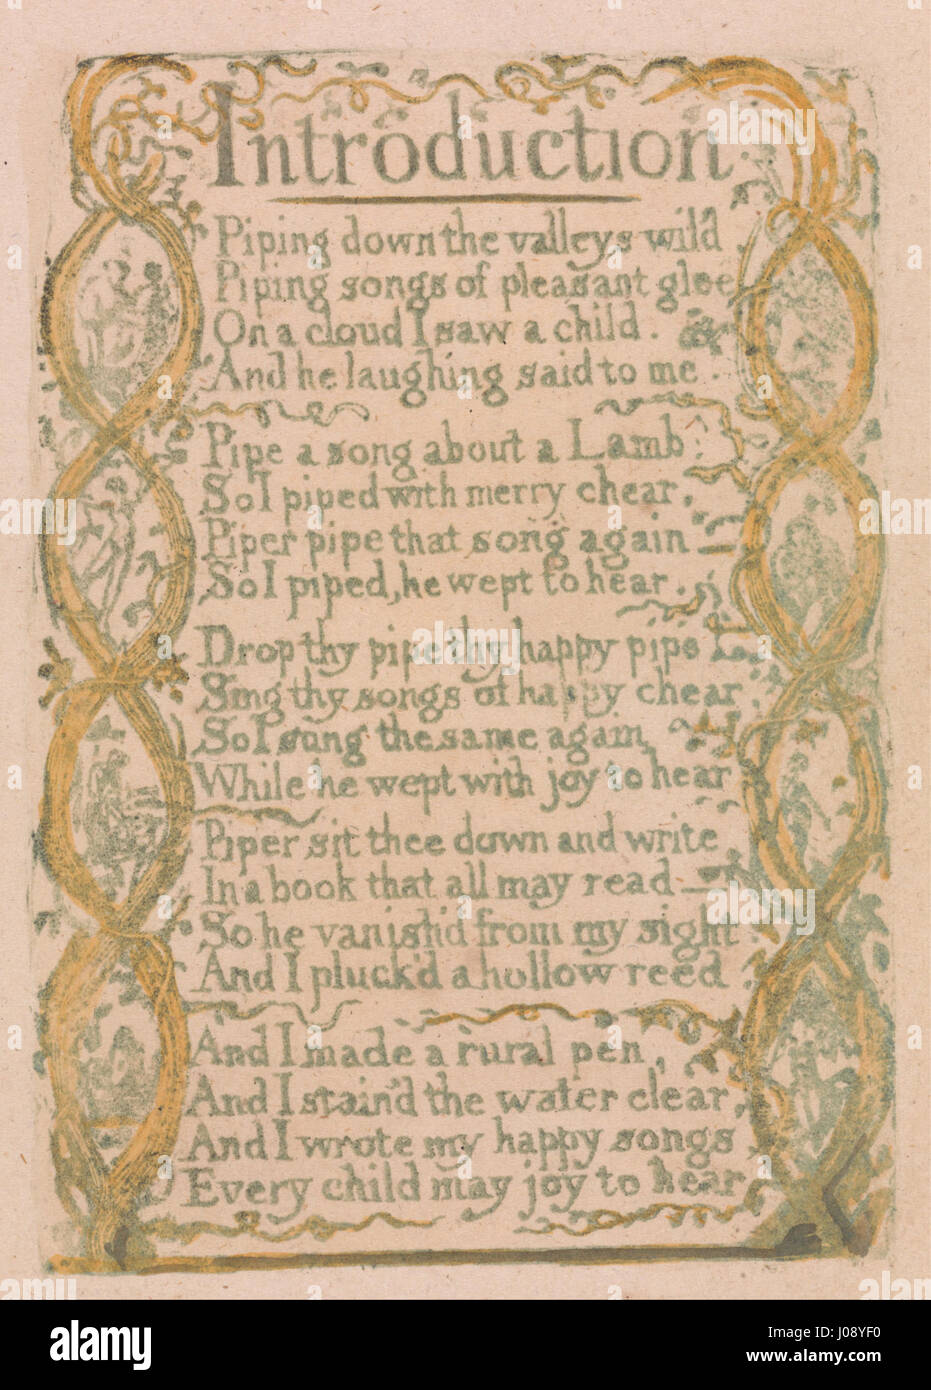 Introduction
Piping down the valleys wild
Piping songs of pleasant glee
On a cloud I saw a child.
And he laughing said to me.
Pipe a song about a Lamb:
So I piped with merry chear,
Piper pipe that song again—
So I piped, he wept to hear.
Drop thy pipe thy happy pipe
Sing thy songs of happy chear
So I sung the same again
While he wept with joy to hear
Piper sit thee down and write
In a book that all may read—
So he vanish'd from my sight
And I pluck'd a hollow reed
And I made a rural pen,
And I stain'd the water clear,
And I wrote my happy songs
Every child may joy to hear
alamy
Image ID: J08YF0
www.alamy.com